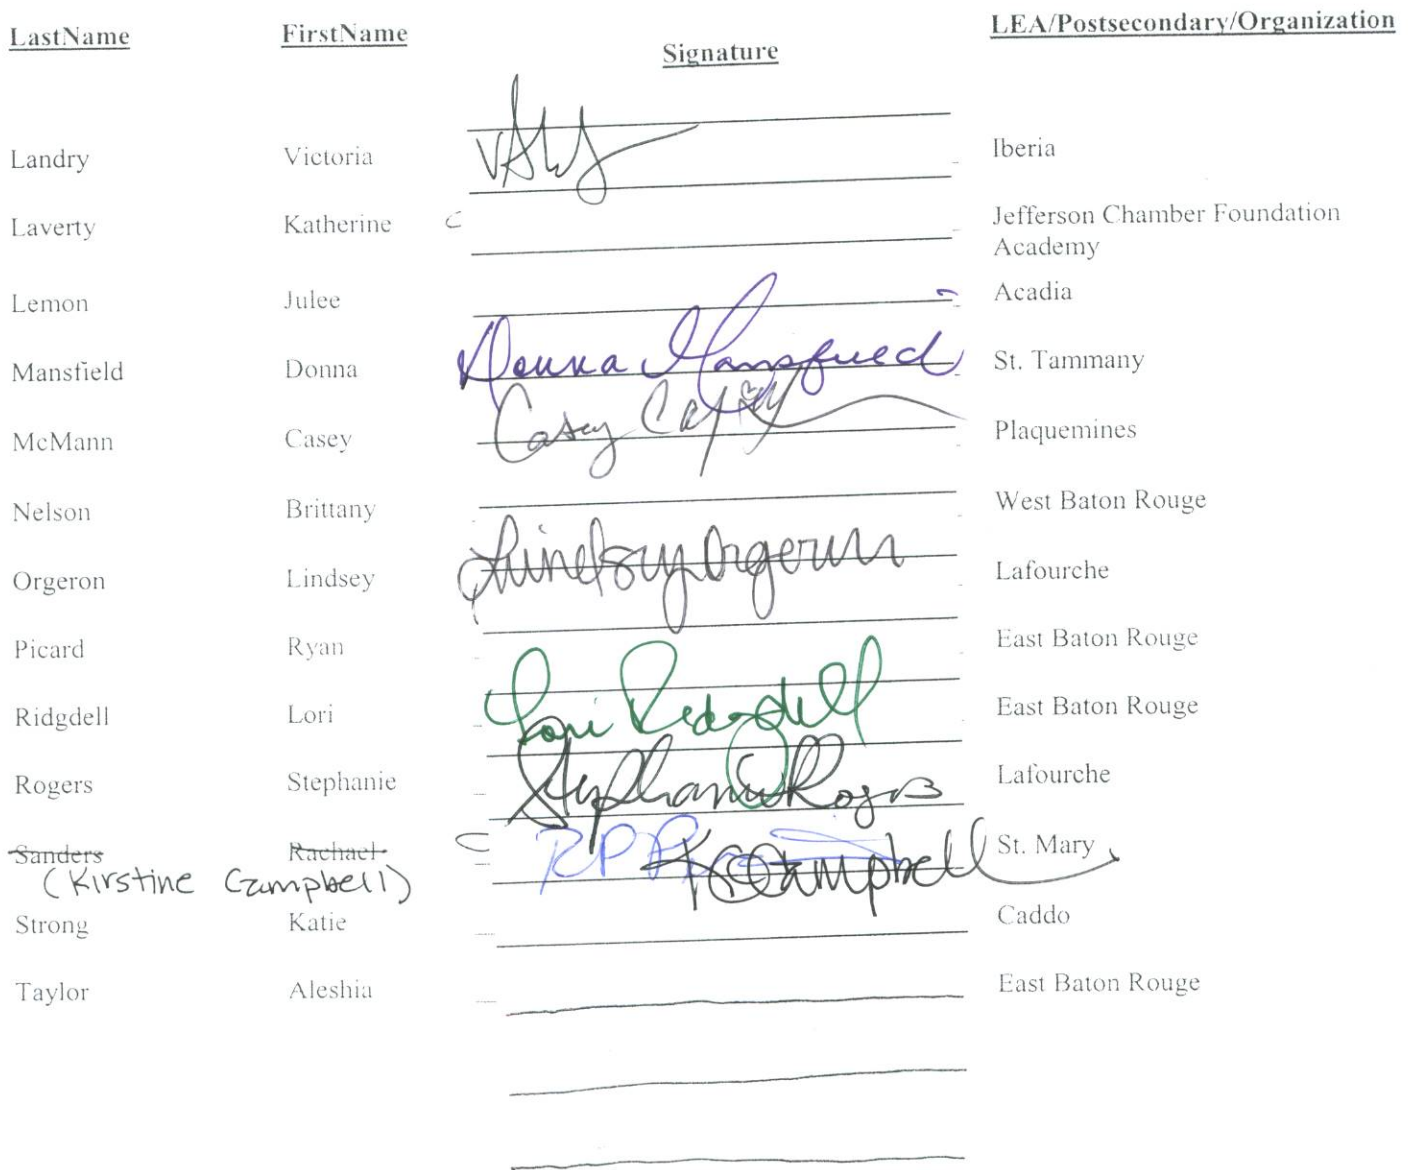 LastName FirstName Signature LEA/Postsecondary/Organization
Landry Victoria Iberia
Laverty Katherine Jefferson Chamber Foundation
Academy
Lemon Julee Acadia
Mansfield Donna Donna Mansfield St. Tammany
McMann Casey Casey Plaquemines
Nelson Brittany West Baton Rouge
Orgeron Lindsey Lindsey Orgeron Lafourche
Picard Ryan East Baton Rouge
Ridgdell Lori Lori Ridgdell East Baton Rouge
Rogers Stephanie Stephanie Rogers Lafourche
Sanders Rachael Campbell St. Mary
(Kirstine Campbell)
Strong Katie Caddo
Taylor Aleshia East Baton Rouge